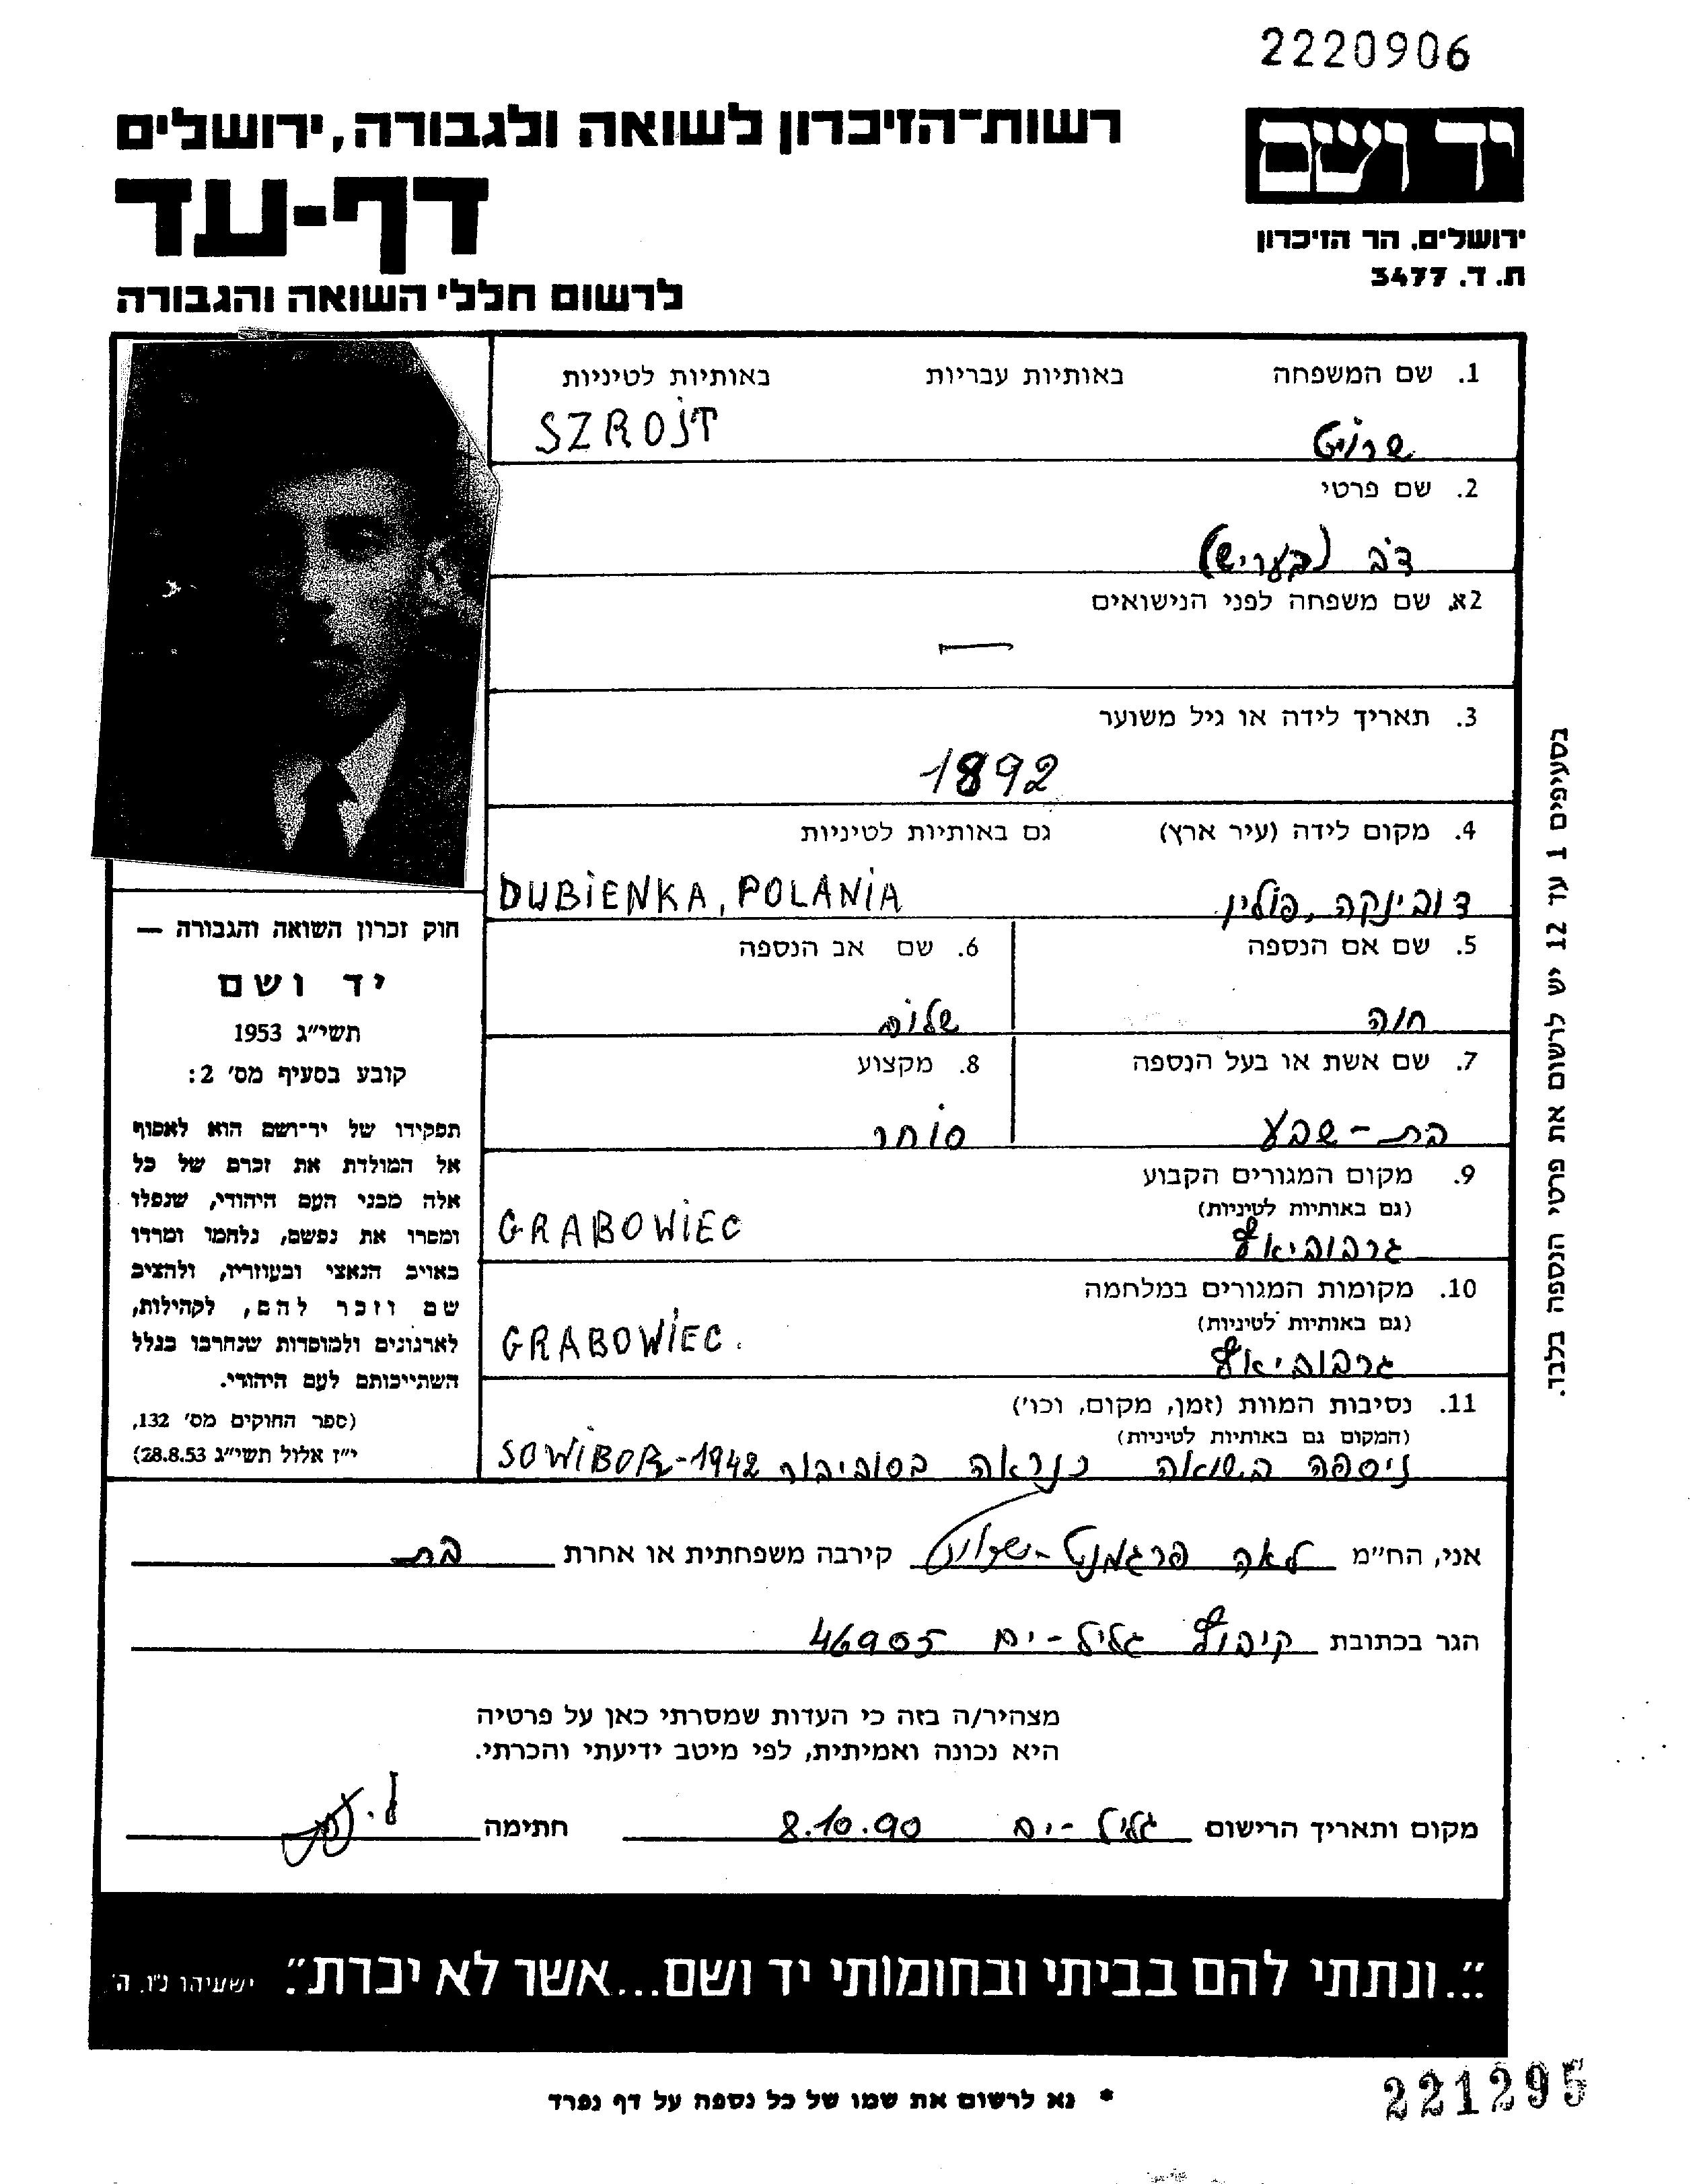 2220906
רשות־הזיכרון לשואה ולגבורה, ירושלים
יד ושם
דף-עד
ירושלים, הר הזיכרון
ת. ד. 3477
לרשום חללי השואה והגבורה
1. שם המשפחה באותיות עבריות באותיות לטיניות
שרויט SZROJT
2. שם פרטי
דב (בעריש)
2א. שם משפחה לפני הנישואים
—
3. תאריך לידה או גיל משוער
1892
4. מקום לידה (עיר ארץ) גם באותיות לטיניות
דובינקה, פולין DUBIENKA, POLANIA
5. שם אם הנספה 6. שם אב הנספה
חוה שלום
7. שם אשת או בעל הנספה 8. מקצוע
בת-שבע סוחר
9. מקום המגורים הקבוע
(גם באותיות לטיניות)
גרבוביאץ GRABOWIEC
10. מקומות המגורים במלחמה
(גם באותיות לטיניות)
גרבוביאץ GRABOWIEC.
11. נסיבות המוות (זמן, מקום, וכו')
(המקום גם באותיות לטיניות)
ניספה בשואה כנראה בסוביבור SOWIBOR-1942
חוק זכרון השואה והגבורה —
יד ושם
תשי״ג 1953
קובע בסעיף מס' 2:
תפקידו של יד־ושם הוא לאסוף
אל המולדת את זכרם של כל
אלה מבני העם היהודי, שנפלו
ומסרו את נפשם, נלחמו ומרדו
באויב הנאצי ובעוזריו, ולהציב
שם וזכר להם, לקהילות,
לארגונים ולמוסדות שנחרבו בגלל
השתייכותם לעם היהודי.
(ספר החוקים מס' 132,
י״ז אלול תשי״ג 28.8.53)
בסעיפים 1 עד 12 יש לרשום את פרטי הנספה בלבד.
אני, הח״מ לאה פרגמנט- קירבה משפחתית או אחרת בת
הגר בכתובת קיבוץ גליל-ים 46905
מצהיר/ה בזה כי העדות שמסרתי כאן על פרטיה
היא נכונה ואמיתית, לפי מיטב ידיעתי והכרתי.
מקום ותאריך הרישום גליל-ים 8.10.90 חתימה
״...ונתתי להם בביתי ובחומותי יד ושם...אשר לא יכרת״. ישעיהו נ״ו, ה'
* נא לרשום את שמו של כל נספה על דף נפרד
221295